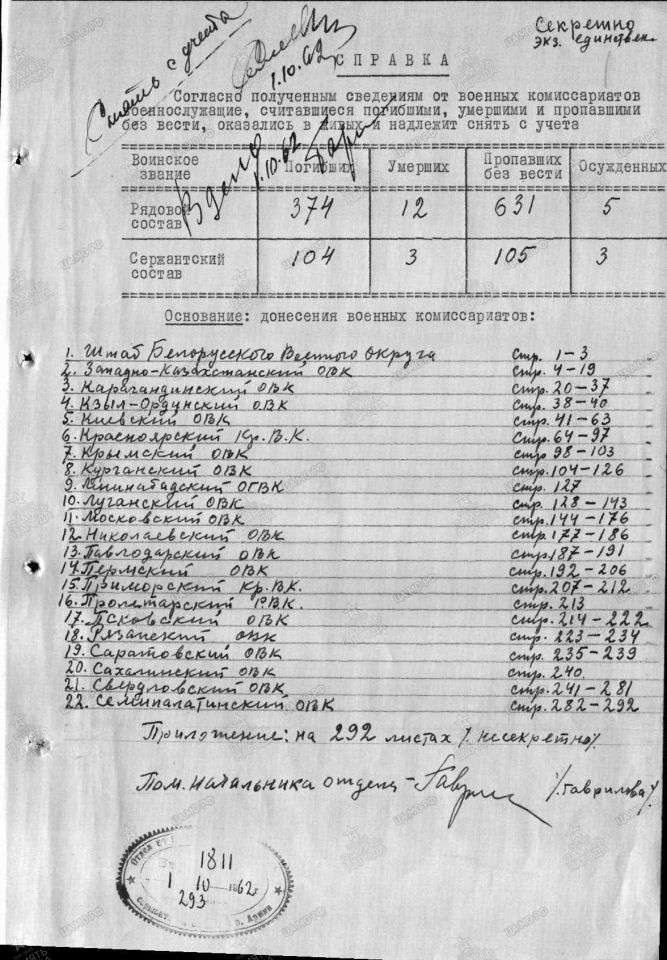 Секретно
экз. единствен.
Снять с учета
1.10.62
СПРАВКА
Согласно полученным сведениям от военных комиссариатов
военнослужащие, считавшиеся погибшими, умершими и пропавшими
без вести, оказались в живых и надлежит снять с учета
В дело
1.10.62
Воинское звание Погибших Умерших Пропавших без вести Осужденных
Рядовой состав 374 12 631 5
Сержантский состав 104 3 105 3
Основание: донесения военных комиссариатов:
1. Штаб Белорусского Военного округа стр. 1-3
2. Западно-Казахстанский ОВК стр. 4-19
3. Карагандинский ОВК стр. 20-37
4. Кзыл-Ордунский ОВК стр. 38-40
5. Киевский ОВК стр. 41-63
6. Красноярский Кр.В.К. стр. 64-97
7. Крымский ОВК стр. 98-103
8. Курганский ОВК стр. 104-126
9. Ленинабадский ОГВК стр. 127
10. Луганский ОВК стр. 128-143
11. Московский ОВК стр. 144-176
12. Николаевский ОВК стр. 177-186
13. Павлодарский ОВК стр. 187-191
14. Пермский ОВК стр. 192-206
15. Приморский Кр.ВК. стр. 207-212
16. Пролетарский Р.В.К. стр. 213
17. Псковский ОВК стр. 214-222
18. Рязанский ОВК стр. 223-234
19. Саратовский ОВК стр. 235-239
20. Сахалинский ОВК стр. 240
21. Свердловский ОВК стр. 241-281
22. Семипалатинский ОВК стр. 282-292
Приложение: на 292 листах /несекретно/
Пом. начальника отдела - /Гаврилова/
Отдел
1811
1 10 1962 г.
293